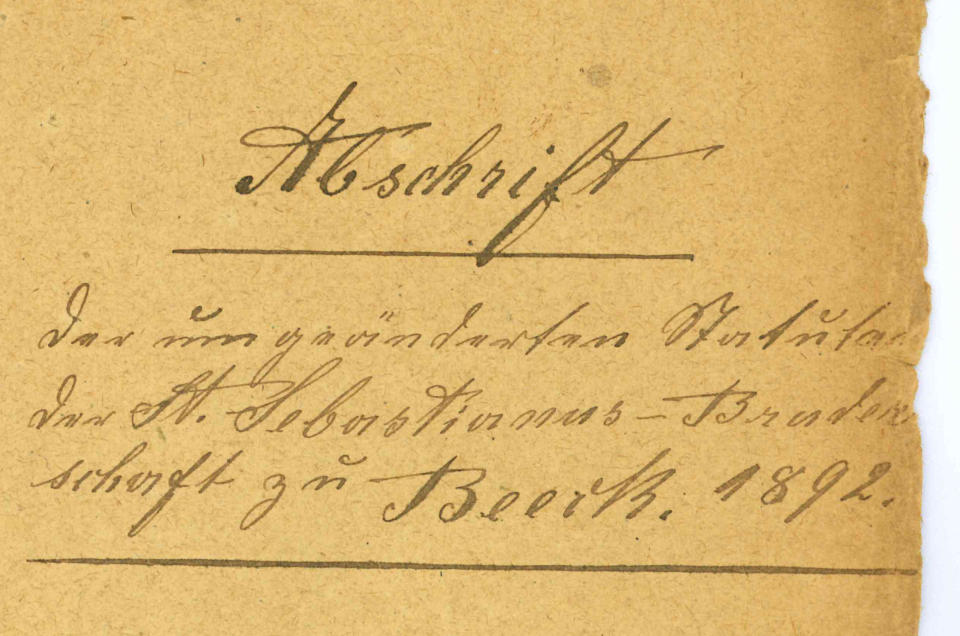 Abschrift
der umgeänderten Statuten
der St. Sebastianus-Bruder
schaft zu Beeck. 1892.